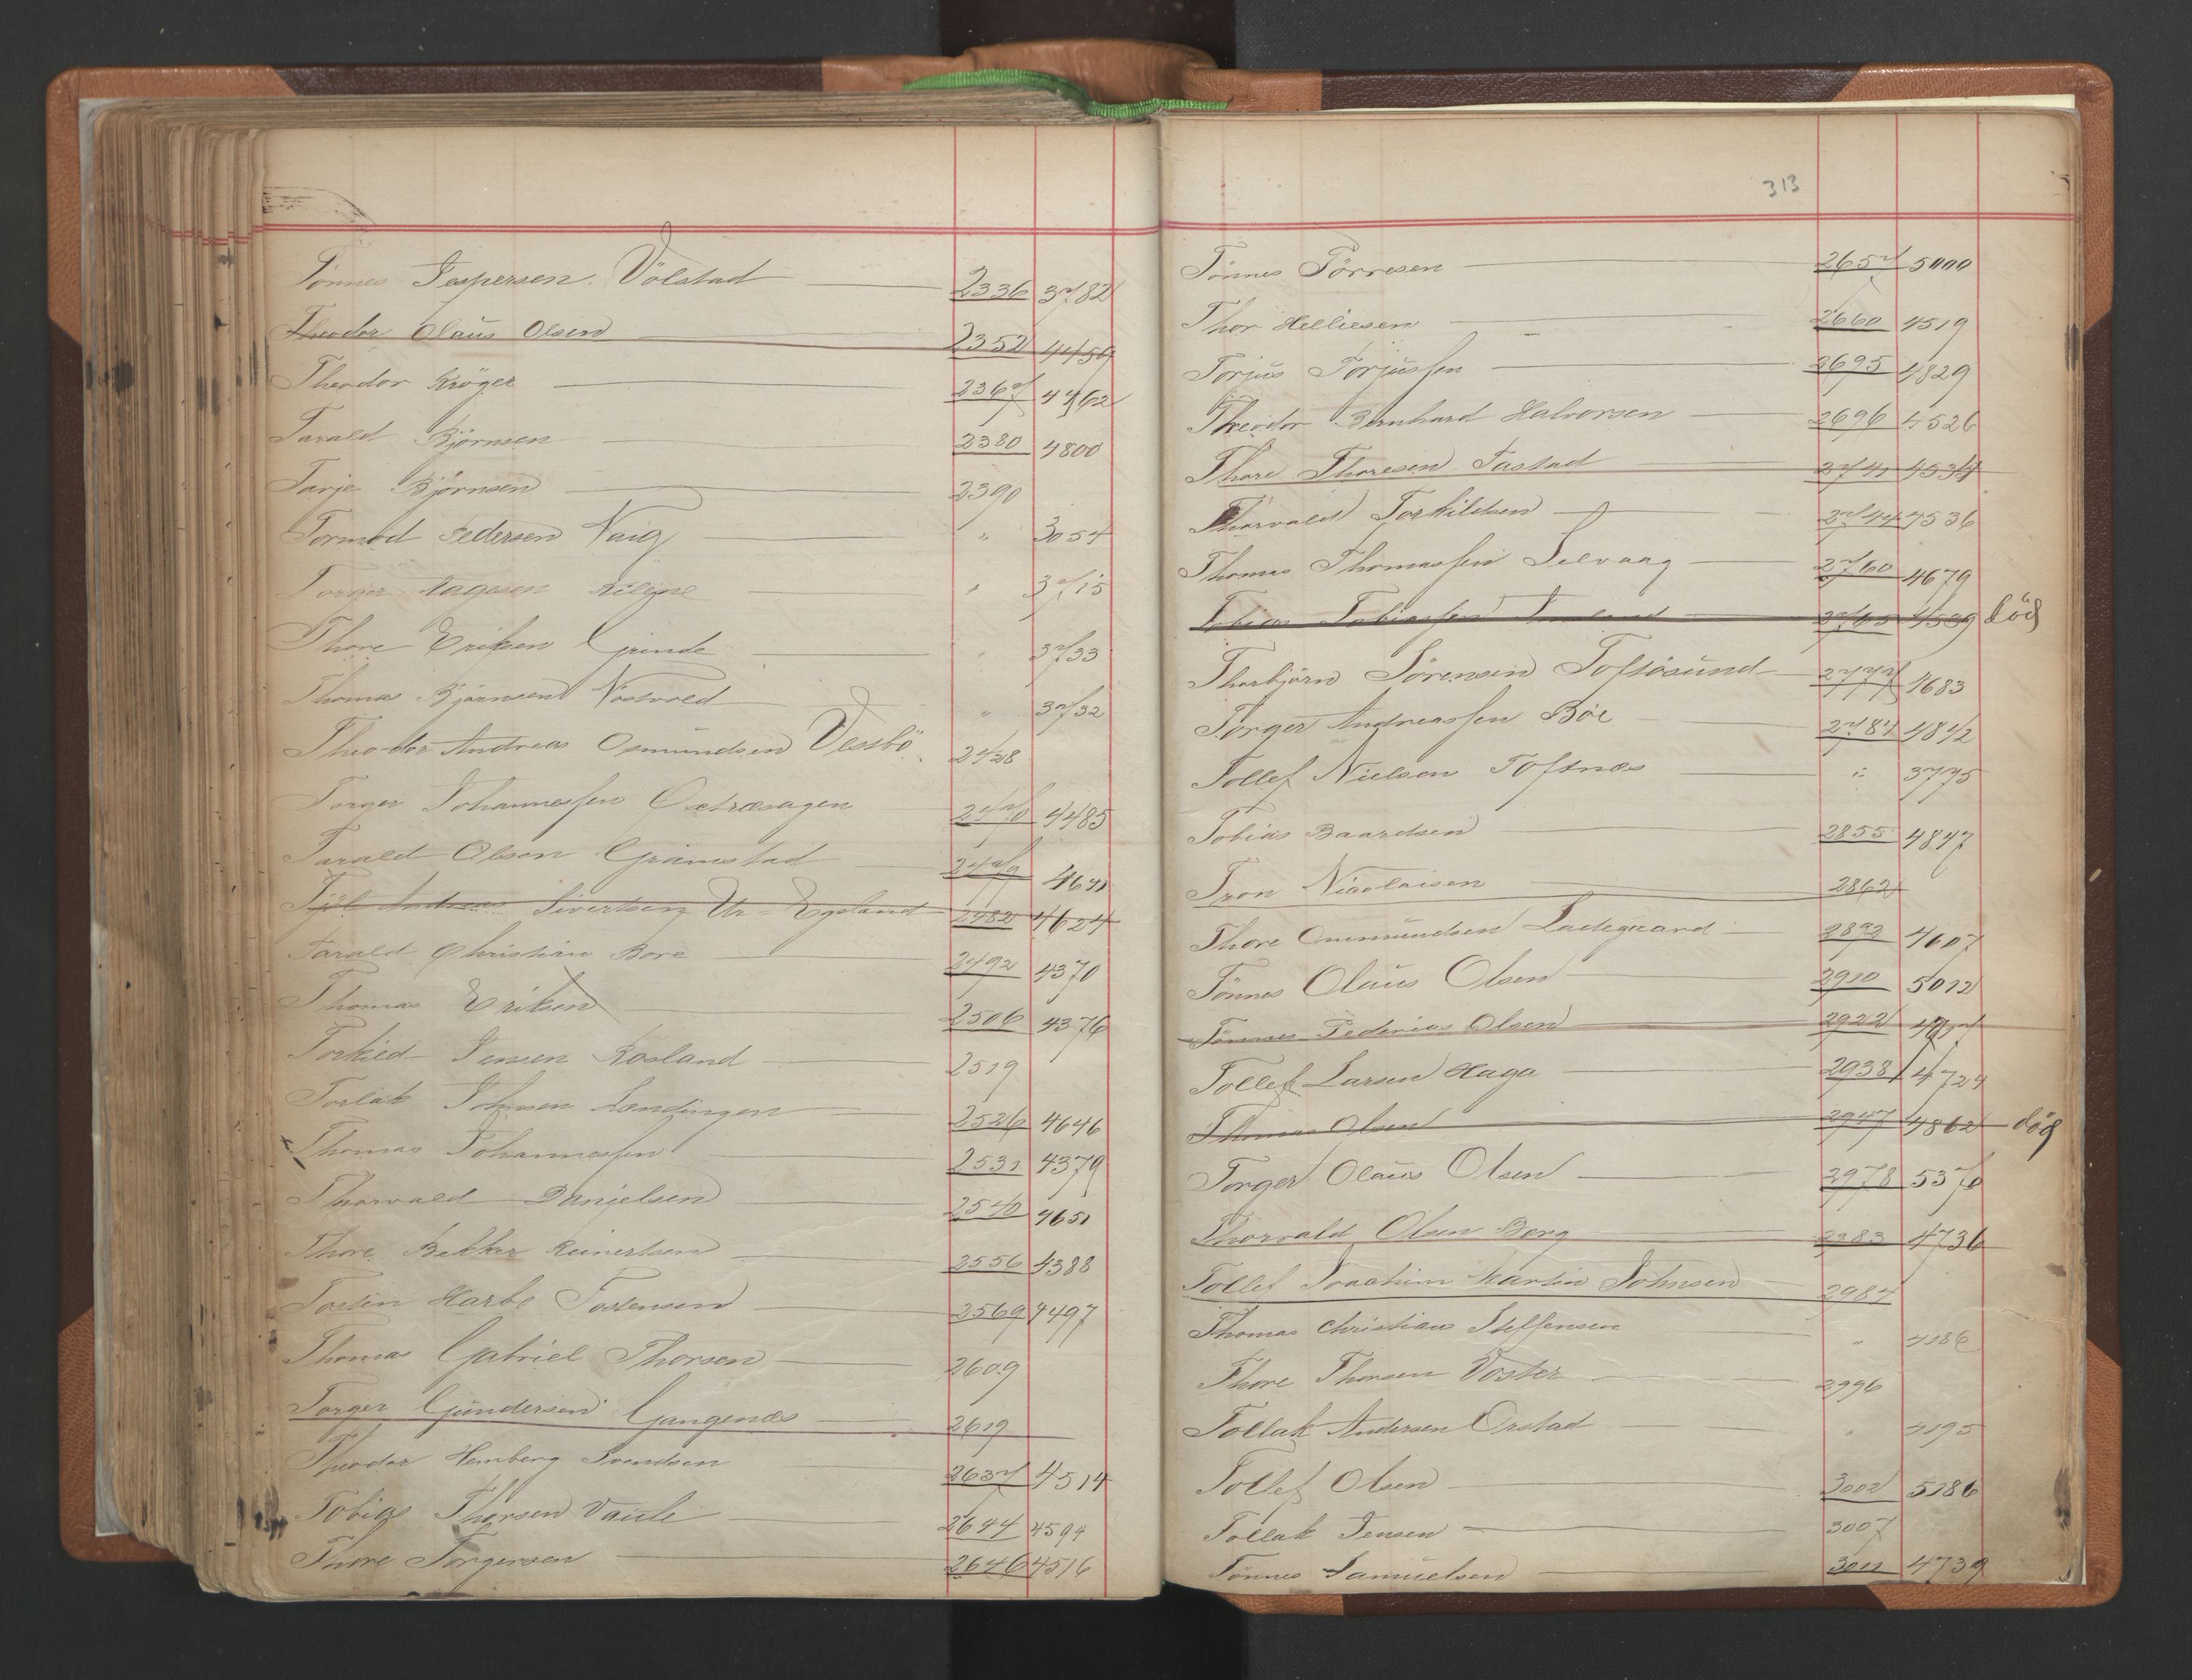 Tönnes Jespersen Völstad 2336 3782
Theodor Olaüs Olsen 2352 4456
Theodor Kröger 2367 4762
Tarald Björnsen 2380 4800
Tarje Björnsen 2390
Tormod Pedersen Varig " 3054
Torger Aagesen " 3715
Thore Eriksen Grinde " 3733
Thomas Bjørnsen Nostvold " 3732
Theodor Andreas Osmundsen Vessbö 2428
Torger Johannessen 2470 4485
Tarald Olsen Grimstad 2479
Andreas Sivertsen Ur=Egeland 2482 4624
Tarald Christian Bore 2492 4370
Thomas Eriksen 2506 4376
Torkild Jensen Rosland 2519
Torlak Johnsen Landingen 2526 4646
Thomas Johannessen 2531 4379
Thorvald Danielsen 2540 4651
Thore Bekker Reinertsen 2556 4388
Tosten Harbo Tostensen 2569 4497
Thomas Gabriel Thorsen 2609
Torger Gündersen Gangenæs 2619
Theodor Hemberg Svendsen 2637 4514
Tobias Thorsen Vaule 2644 4594
Thore Torgersen 2646 4516
313
Tönnes Törresen 2657 5000
Thor Helliesen 2660 4519
Torjüs Torjüssen 2695 4829
Theodor Bernhard Halvorsen 2696 4526
Thore Thoresen Tastad 2741 4534
Thorvald Torkildsen 2744 4536
Thomas Thomassen Selvaag 2760 4679
Tobias Tobiassen 2765 4539 död
Thorbjörn Sörensen Toftösund 2777 4683
Torger Andreassen Böe 2784 4842
Tollef Nielsen Toftnes " 3775
Tobias Baardsen 2855 4847
Tron Nicolaisen 2862
Thore Ommundsen Ladegaard 2892 4607
Tönnes Olaüs Olsen 2910 5012
Tönnes Pederius Olsen 2922
Tollef Larsen Haga 2938 4724
Thomas Olsen 2947 4862 död
Torger Olaüs Olsen 2978 5370
Thorvald Olsen Berg 2983 4736
Tollef Joachim Martin Johnsen 2984
Thomas Christian Steffensen " 4186
Thore Thorsen Voster 2996
Tollak Andersen Orstad " 4195
Tollef Olsen 3002 5286
Tollak Jensen 3007
Tönnes Samüelsen 3011 4739